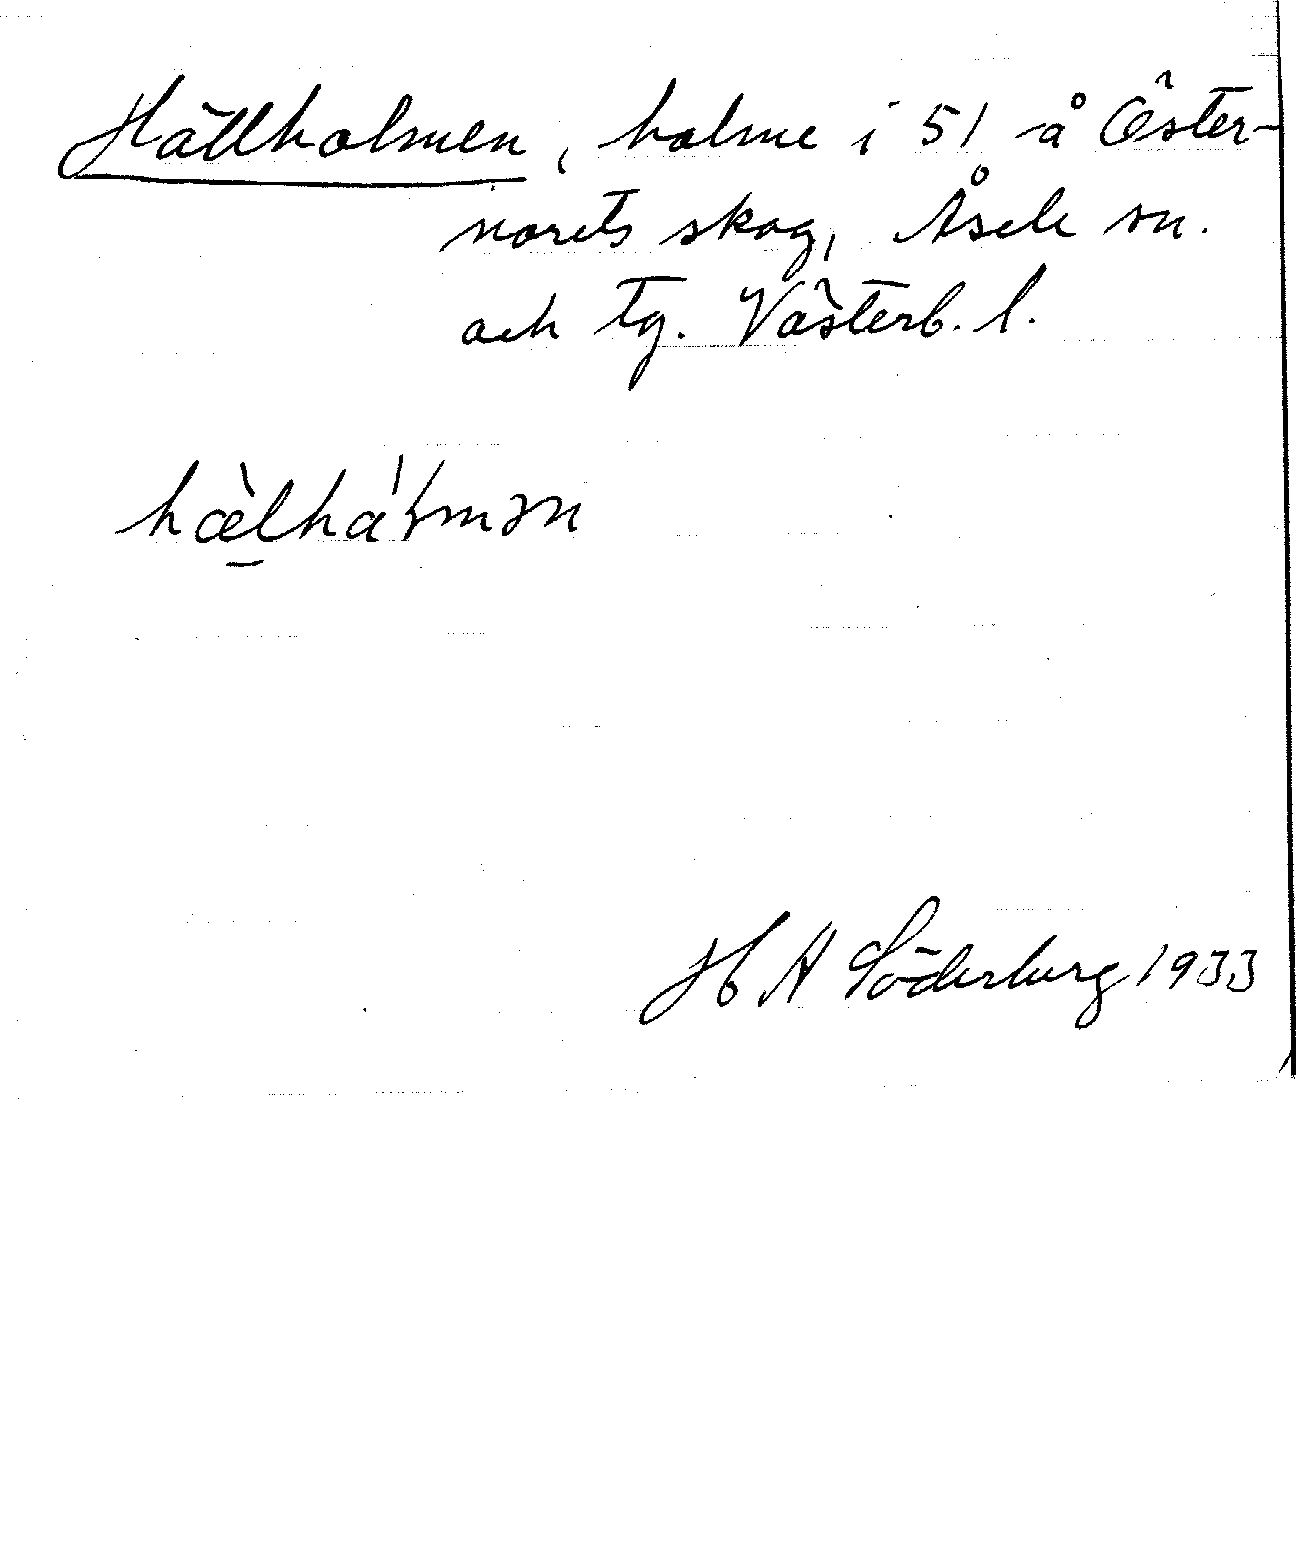 Hällholmen, holme i 51 å Öster-
norets skog, Åsele sn.
och tg. Västerb. l.
hæ̀lhá'ɫmən
H A Söderberg 1933